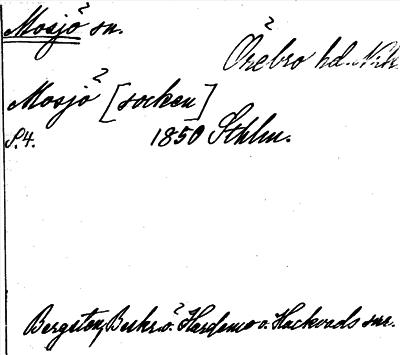 Mosjö sn.
Örebro hd. Nrk.
Mosjö [socken]
S. 4. 1850 Sthlm.
Bergsten, Beskr. ö. Hardemo o. Hackvads snr.